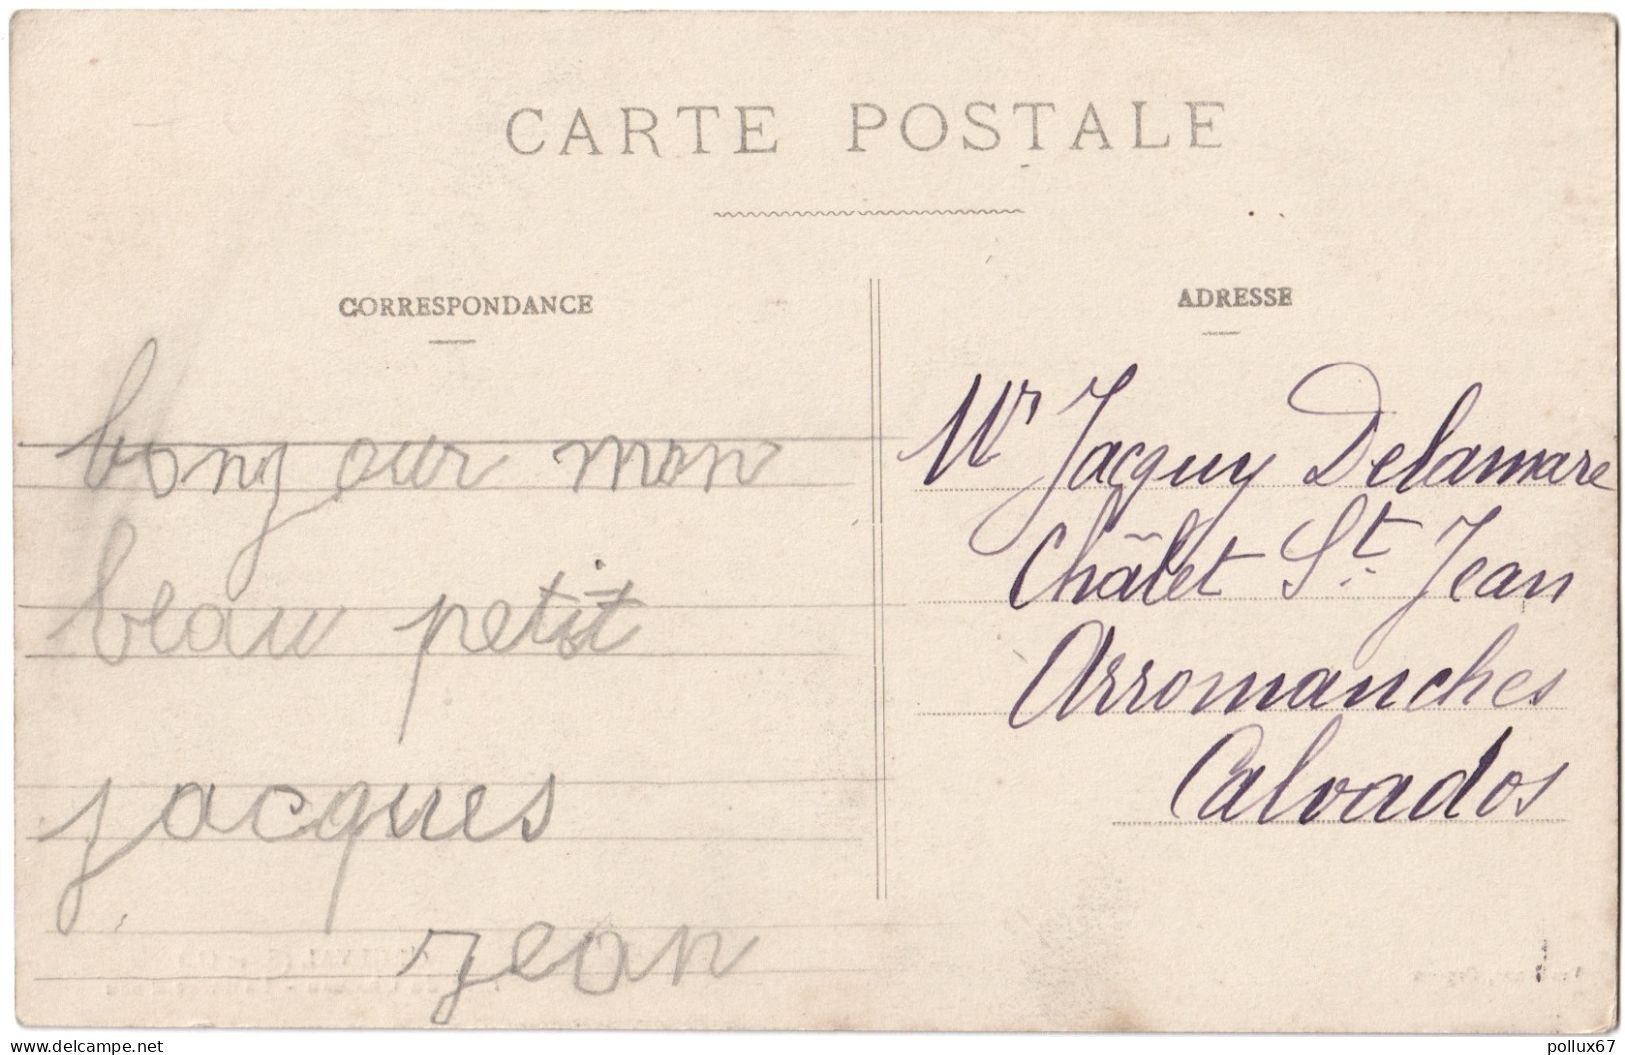 CARTE POSTALE
CORRESPONDANCE
bonjour mon
beau petit
jacques
jean
ADRESSE
Mr Jacquy Delamare
Châlet St. Jean
Arromanches
Calvados
delcampe.net
pollux67